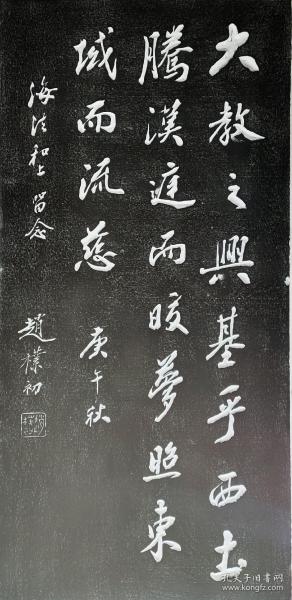 大教之興基乎西土
騰漢庭而皎夢照東
域而流慈 庚午秋
海法和上留念
趙樸初
孔夫子旧书网